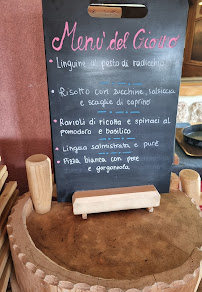 Menù del Giorno
• Linguine al pesto di radicchio
• Risotto con zucchine, salsiccia
e scaglie di caprino
• Ravioli di ricotta e spinaci al
pomodoro e basilico
• Lingua salmistrata e purè
• Pizza bianca con pere
e gorgonzola